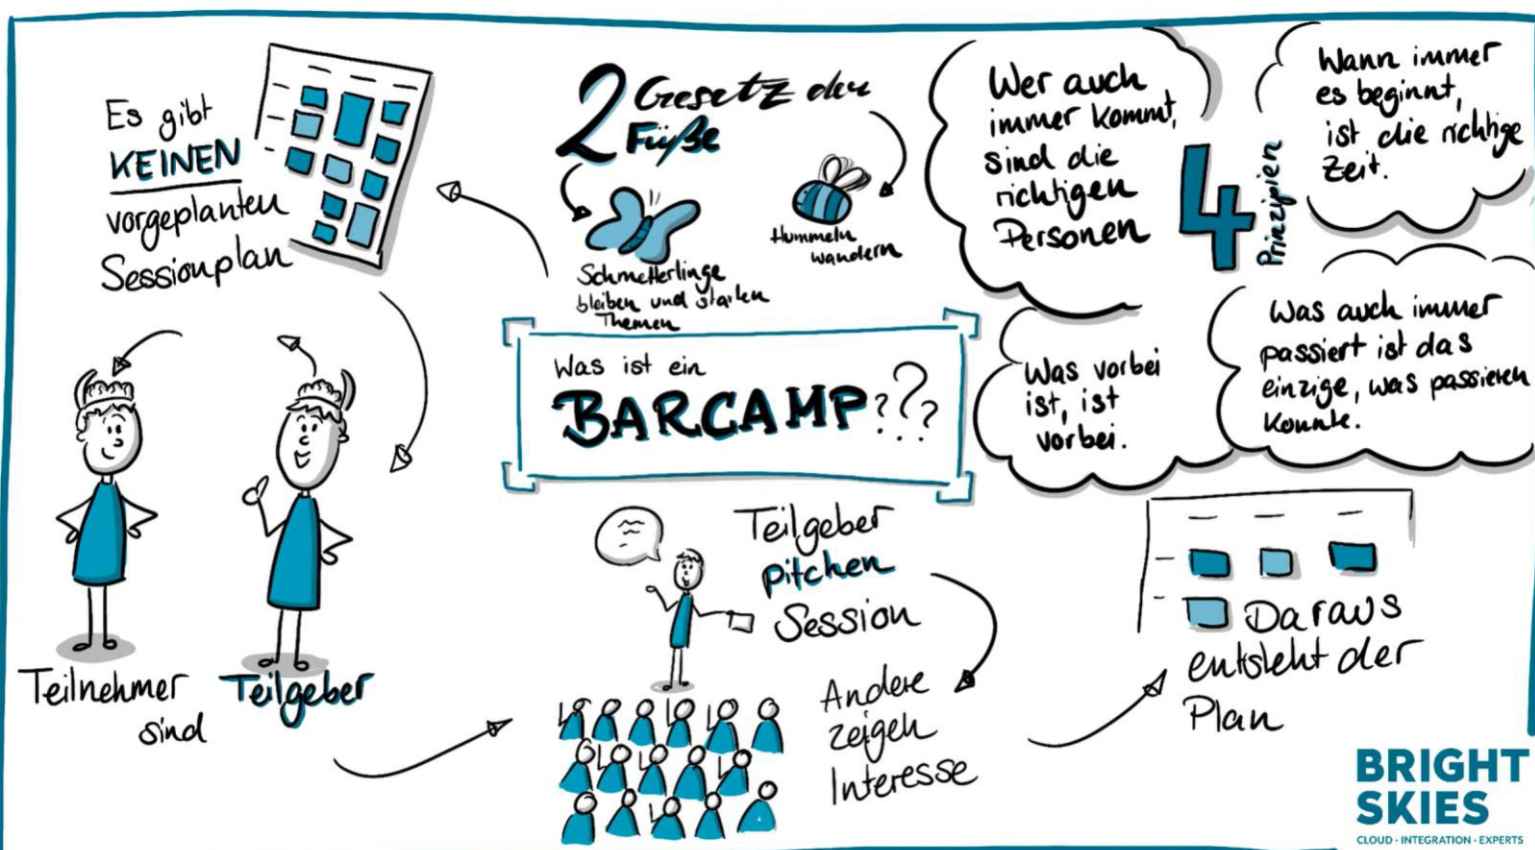 Es gibt
KEINEN
vorgeplanten
Sessionplan
2 Gesetz der
Füße
Schmetterlinge
bleiben und starten
Themen
Hummeln
wandern
Wer auch
immer kommt,
sind die
richtigen
Personen
4
Prinzipien
Wann immer
es beginnt,
ist die richtige
Zeit.
Was vorbei
ist, ist
vorbei.
Was auch immer
passiert ist das
einzige, was passieren
konnte.
Was ist ein
BARCAMP???
Teilnehmer
sind
Teilgeber
Teilgeber
pitchen
Session
Andere
zeigen
Interesse
Daraus
entsteht der
Plan
BRIGHT
SKIES
CLOUD · INTEGRATION · EXPERTS